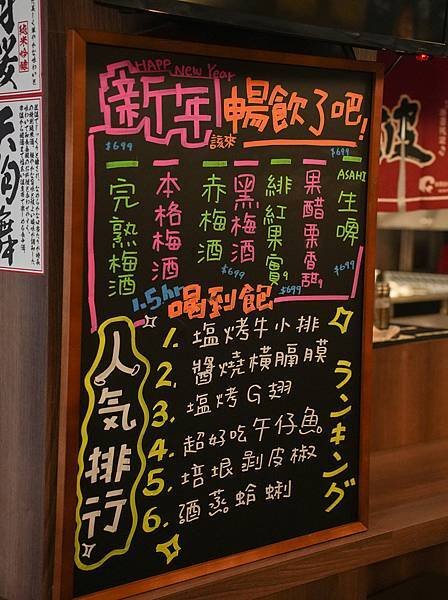 HAPPY New Year
新年
該來
暢飲了吧!
$699
$699
ASAHI
生啤
果醋栗香甜
緋紅果實
黑梅酒
赤梅酒
本格梅酒
完熟梅酒
$699
$699
$699
1.5hr
喝到飽
人気排行
1. 塩烤牛小排
2. 醬燒橫膈膜
3. 塩烤G翅
4. 超好吃午仔魚
5. 培垠剥皮椒
6. 酒蒸蛤蜊
ランキング
純米吟醸